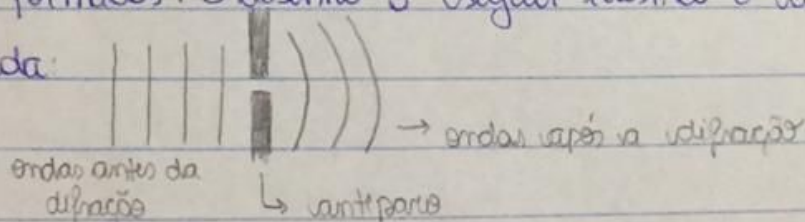 o
da:
→ ondas após a difração
ondas antes da
difração
↳ anteparo